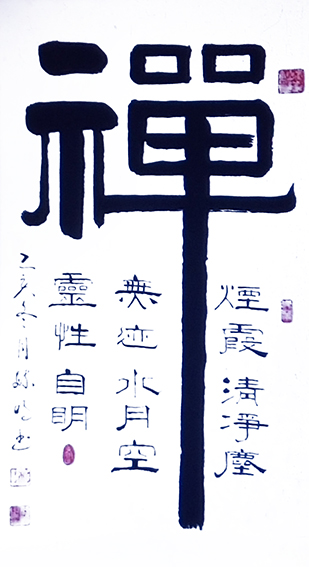 禪
煙霞清淨塵
無迹水月空
靈性自明
乙亥冬月